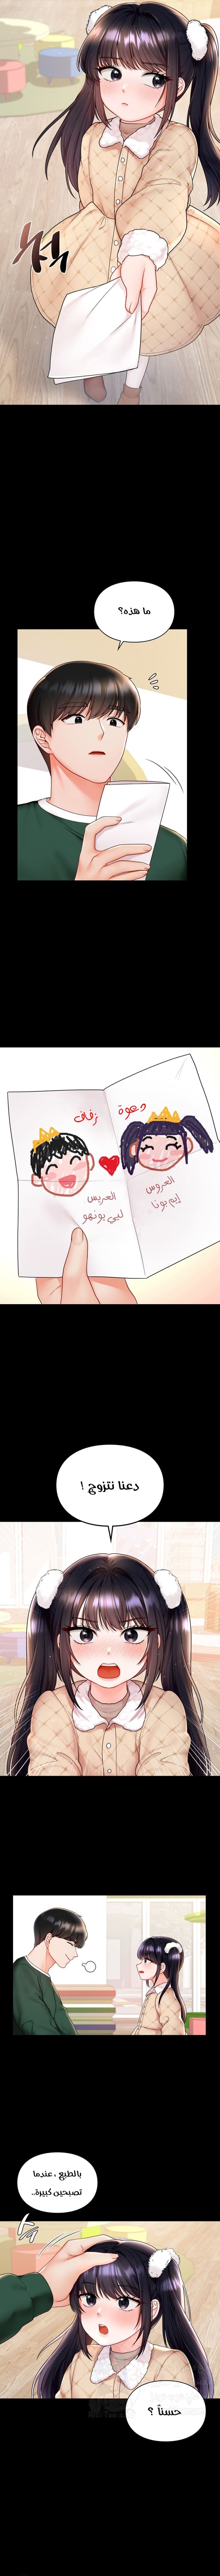 ما هذه؟
دعوة زفاف
العروس
إيم بونا
العريس
لبي بونهو
دعنا نتزوج !
بالطبع ، عندما
تصبحين كبيرة..
حسناً ؟